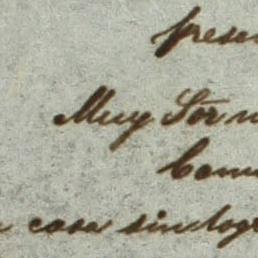 presen
Muy Sor n
Comu
casa sin logr